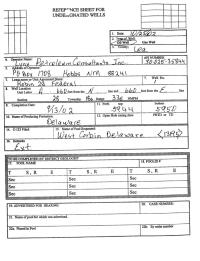 REFERENCE SHEET FOR
UNDESIGNATED WELLS
1. Date:
2. Type of Well:
Oil Well Gas Well
3. County:
Lea
4. Operator Name:
API NUMBER
Petroleum Consultants Inc
30-025-35844
5. Address of Operator:
PO Box 1708 Hobbs NM 88241
6. Lease name or Unit Agreement Name
7. Well No.
28 Federal
8. Well Location
Unit Letter A 660 feet from the N line and 660 feet from the E line
Section 28 Township 18s Range 33E NMPM
9. Completion Date:
11. Perfs top bottom
9/13/02 5944 5950
10. Name of Producing Formation
12. Open Hole casing shoe PBTD or TD
Delaware
14. C-123 Filed 15. Name of Pool Requested
West Corbin Delaware
16. Remarks
Ext
TO BE COMPLETED BY DISTRICT GEOLOGIST
17. POOL NAME 18. POOL ID #
T S, R E T S, R E
Sec Sec
Sec Sec
Sec Sec
19. ADVERTISED FOR HEARING: 20. CASE NUMBER:
21. Name of pool for which was advertised.
22a. Placed in Pool 22b. By order number